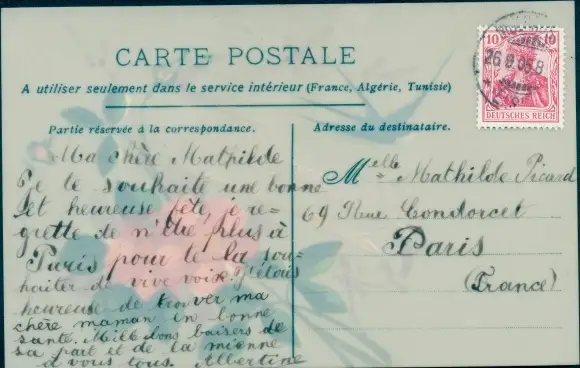 CARTE POSTALE
A utiliser seulement dans le service intérieur (France, Algérie, Tunisie)
Partie réservée à la correspondance.
Ma chère Mathilde
Je te souhaite une bonne
et heureuse fête, je re-
grette de n'être plus à
Paris pour te la sou-
haiter de vive voix. J'étais
heureuse de trouver ma
chère maman en bonne
santé. Mille bons baisers de
sa part et de la mienne
à vous tous. Albertine
Adresse du destinataire.
Melle Mathilde Picard
69 Rue Condorcet
Paris
(France)
10 10
DEUTSCHES REICH
26.9.05.8